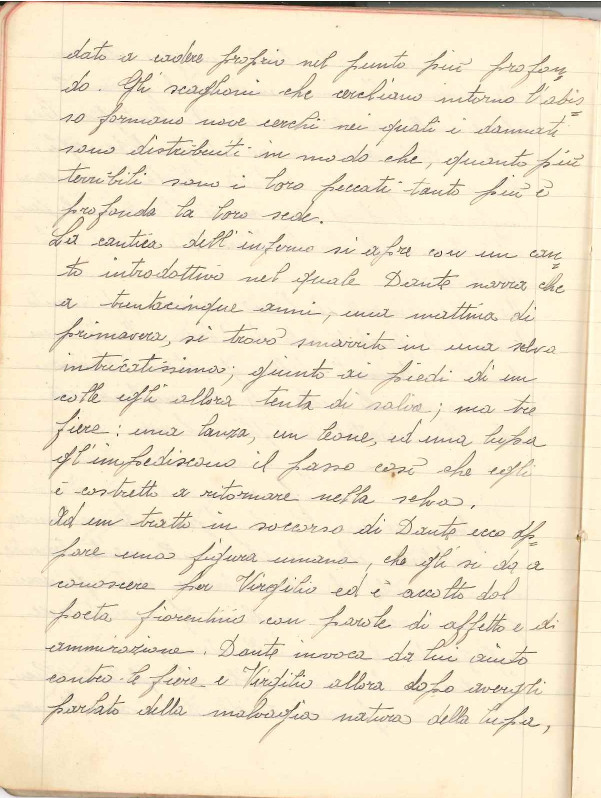 dato a cadere proprio nel punto più profon=
do. Gli scaglioni che cerchiano intorno l'abis=
so formano nove cerchi nei quali i dannati
sono distribuiti in modo che, quanto più
terribili sono i loro peccati tanto più è
profonda la loro sede.
La cantica dell'inferno si apre con un can=
to introduttivo nel quale Dante narra che
a trentacinque anni, una mattina di
primavera, si trovò smarrito in una selva
intricatissima; giunto ai piedi di un
colle egli allora tenta di salire; ma tre
fiere: una lonza, un leone, ed una lupa
gl'impediscono il passo così che egli
è costretto a ritornare nella selva.
Ad un tratto in soccorso di Dante ecco ap=
pare una figura umana, che gli si da a
conoscere per Virgilio ed è accolto dal
poeta fiorentino con parole di affetto e di
ammirazione. Dante invoca da lui aiuto
contro le fiere e Virgilio allora dopo avergli
parlato della malvagia natura della lupa,